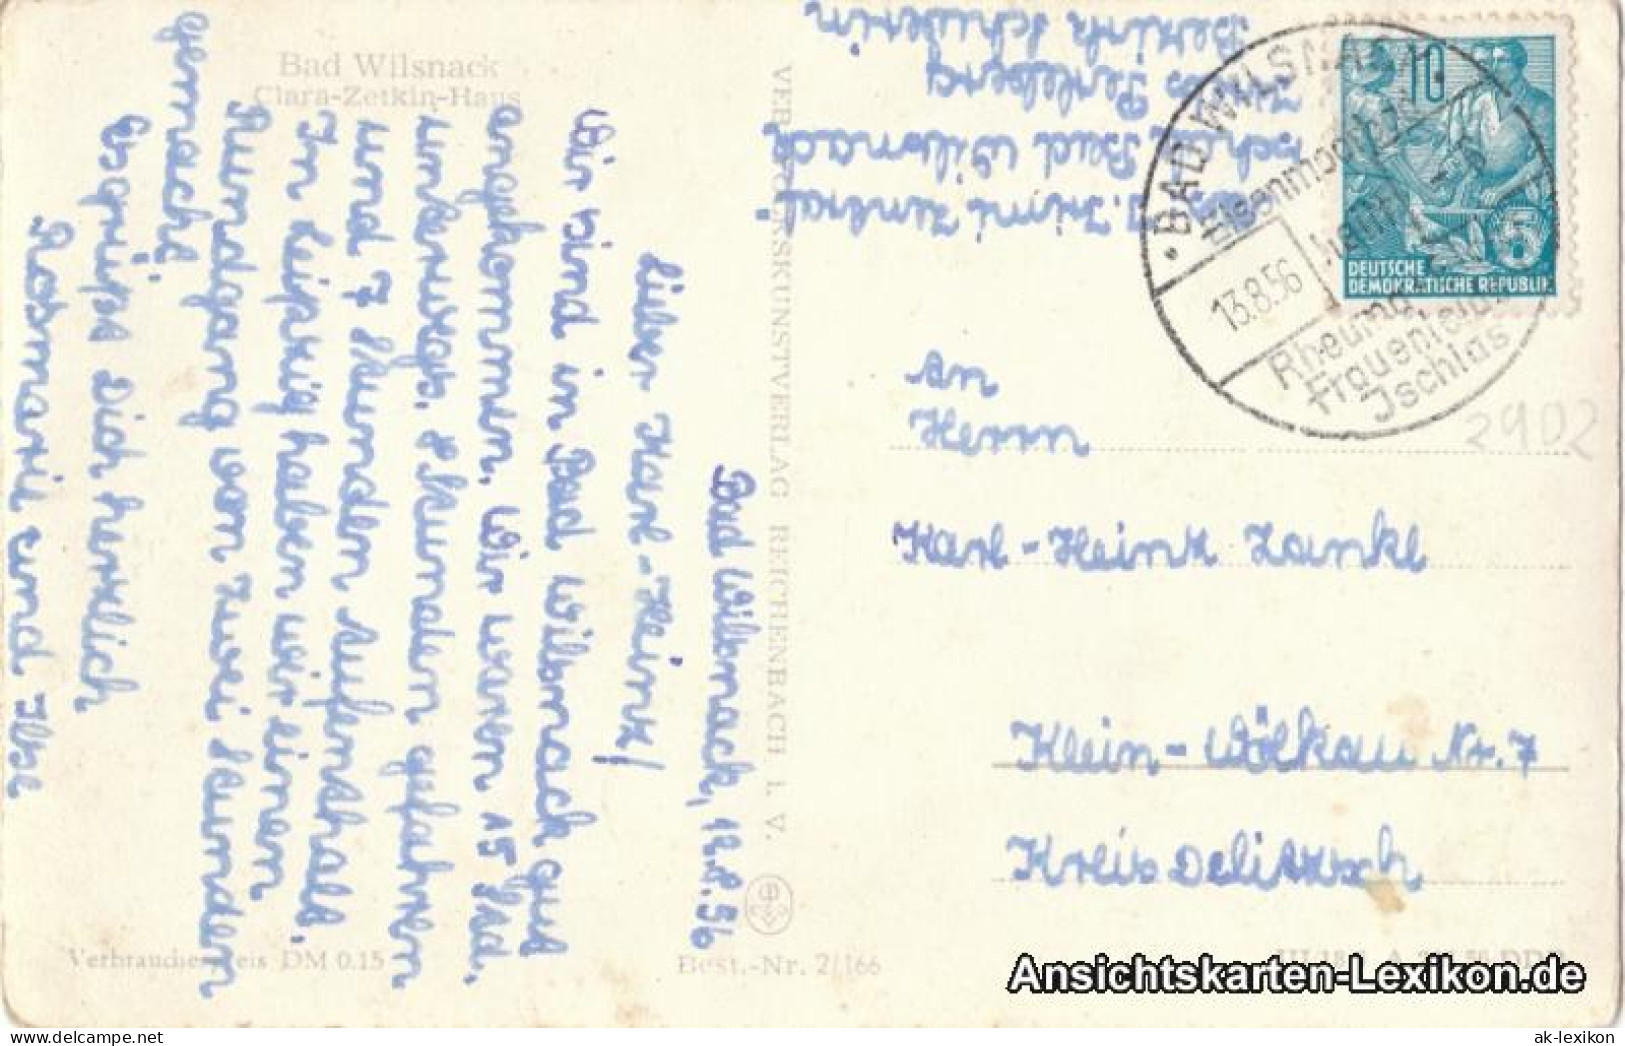 Bad Wilsnack
Clara-Zetkin-Haus
Bad Wilsnack, 12.8.56
Lieber Karl-Heinz!
Wir sind in Bad Wilsnack gut
angekommen. Wir waren 15 Std.
unterwegs. 8 Stunden gefahren
und 7 Stunden Aufenthalt.
In Leipzig haben wir einen
Rundgang von zwei Stunden
gemacht.
Es grüßt Dich herzlich
Rosmarie und Ilse
Verbraucherpreis DM 0.15
VEB VOLKSKUNSTVERLAG REICHENBACH i. V.
Best.-Nr. 2/166
Zentral-
Bad Wilsnack
Perleberg
Bezirk Schwerin
BAD WILSNACK
Eisenmoorbad
heilt
13.8.56
Rheuma
Frauenleiden
Jschias
10
5
DEUTSCHE
DEMOKRATISCHE REPUBLIK
2902
An
Herrn
Karl-Heinz Zankl
Klein-Wölkau Nr. 7
Kreis Delitzsch
Ansichtskarten-Lexikon.de
ak-lexikon